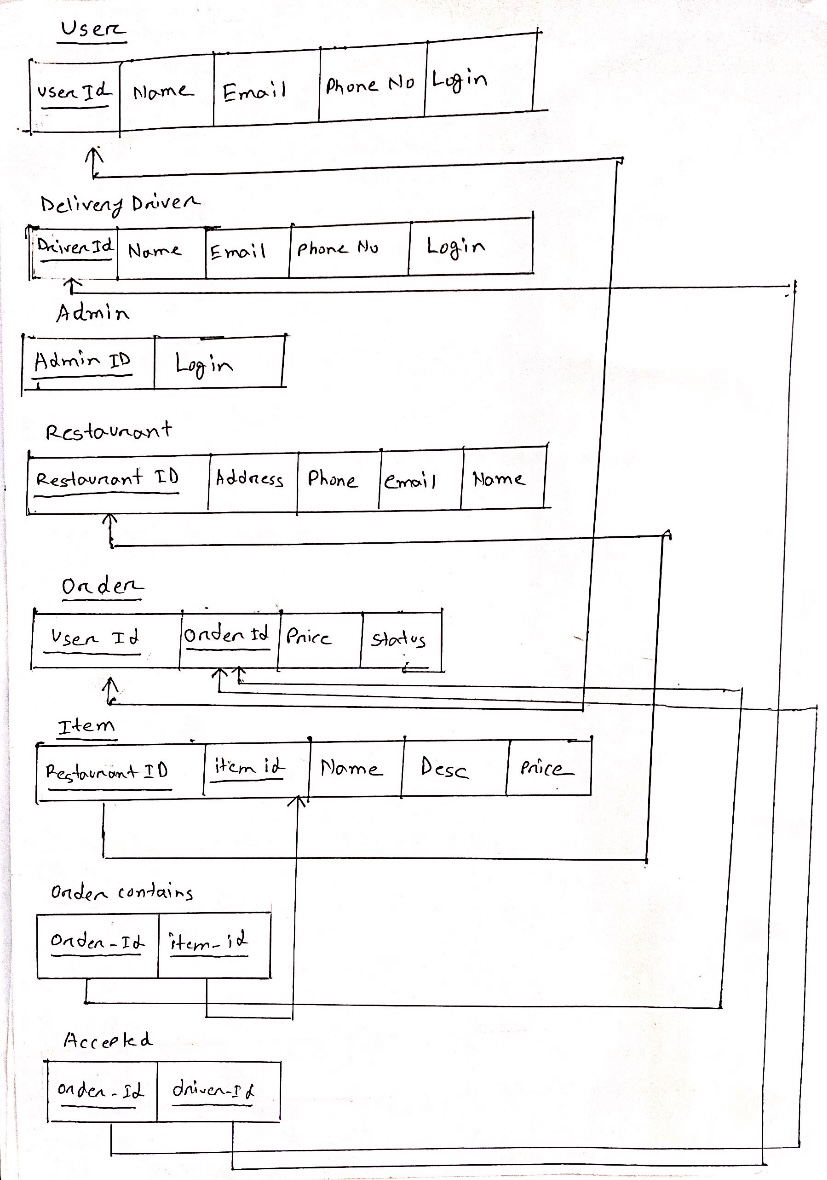 User
User Id Name Email Phone No Login
Delivery Driver
Driver Id Name Email Phone No Login
Admin
Admin ID Login
Restaurant
Restaurant ID Address Phone email Name
Order
User Id Order Id Price Status
Item
Restaurant ID item id Name Desc Price
Order contains
Order-Id item-id
Accepted
order-Id driver-Id